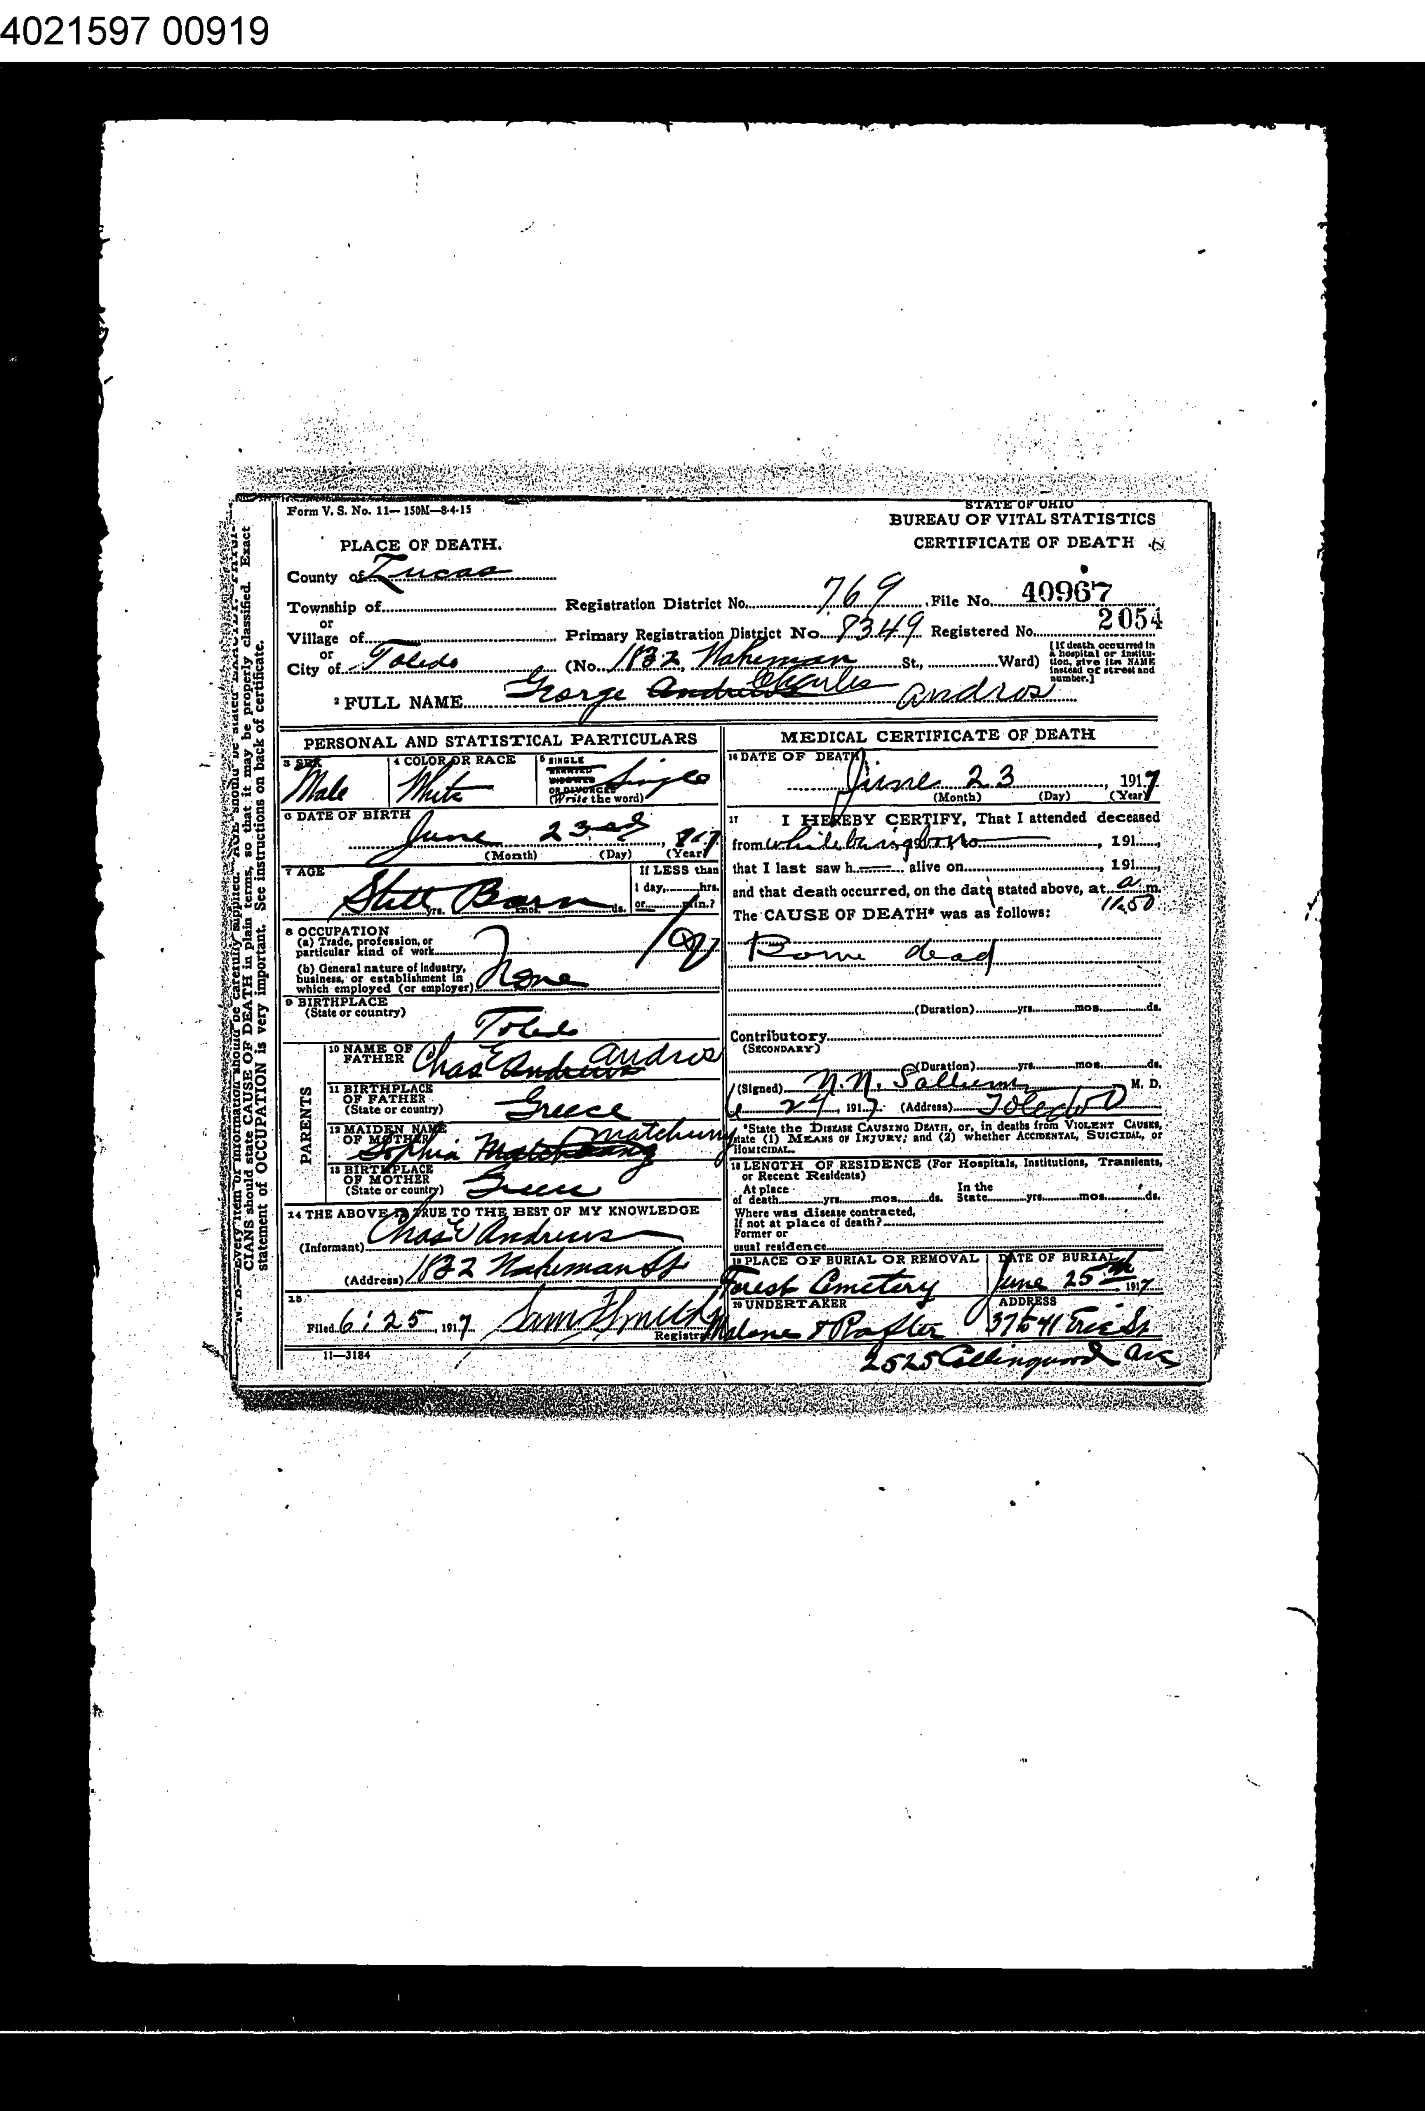 4021597 00919
Form V. S. No. 11—150M—8-4-15
STATE OF OHIO
BUREAU OF VITAL STATISTICS
CERTIFICATE OF DEATH
PLACE OF DEATH.
County of Lucas
Township of
Registration District No. 769 File No. 40967
or
Village of
Primary Registration District No. 8349 Registered No. 2054
or
City of Toledo (No. 1832 Wakeman St., Ward)
[If death occurred in
a hospital or institu-
tion, give its NAME
instead of street and
number.]
2 FULL NAME George Andrews Charles Andros
PERSONAL AND STATISTICAL PARTICULARS
3 SEX
Male
4 COLOR OR RACE
White
5 SINGLE
MARRIED
WIDOWED
OR DIVORCED
(Write the word)
Single
6 DATE OF BIRTH
June 23rd, 1917
(Month) (Day) (Year)
7 AGE
Still Born
yrs. mos. ds.
If LESS than
1 day, hrs.
or min.?
8 OCCUPATION
(a) Trade, profession, or
particular kind of work
(b) General nature of industry,
business, or establishment in
which employed (or employer) None
9 BIRTHPLACE
(State or country)
Toledo
PARENTS
10 NAME OF
FATHER
Chas E Andrews Andros
11 BIRTHPLACE
OF FATHER
(State or country)
Greece
12 MAIDEN NAME
OF MOTHER
Sophia Matchung
13 BIRTHPLACE
OF MOTHER
(State or country)
Greece
14 THE ABOVE IS TRUE TO THE BEST OF MY KNOWLEDGE
(Informant) Chas E Andrews
(Address) 1832 Wakeman St
15
Filed 6:25, 1917 Sam F Smith
Registrar
11—3184
MEDICAL CERTIFICATE OF DEATH
16 DATE OF DEATH
June 23, 1917
(Month) (Day) (Year)
17 I HEREBY CERTIFY, That I attended deceased
from while being born, 191
that I last saw h alive on , 191
and that death occurred, on the date stated above, at a m.
11.50
The CAUSE OF DEATH* was as follows:
Born dead
(Duration) yrs. mos. ds.
Contributory
(SECONDARY)
(Duration) yrs. mos. ds.
(Signed) N. N. M. D.
6 24, 1917 (Address) Toledo O
*State the DISEASE CAUSING DEATH, or, in deaths from VIOLENT CAUSES,
state (1) MEANS OF INJURY; and (2) whether ACCIDENTAL, SUICIDAL, or
HOMICIDAL.
18 LENGTH OF RESIDENCE (For Hospitals, Institutions, Transients,
or Recent Residents)
At place
of death yrs. mos. ds.
In the
State yrs. mos. ds.
Where was disease contracted,
if not at place of death?
Former or
usual residence
19 PLACE OF BURIAL OR REMOVAL
Forest Cemetery
DATE OF BURIAL
June 25th, 1917
20 UNDERTAKER
ADDRESS
Erie St
2525 Collingwood Ave
CIANS should state CAUSE OF DEATH in plain terms, so that it may be properly classified. Exact
statement of OCCUPATION is very important. See instructions on back of certificate.